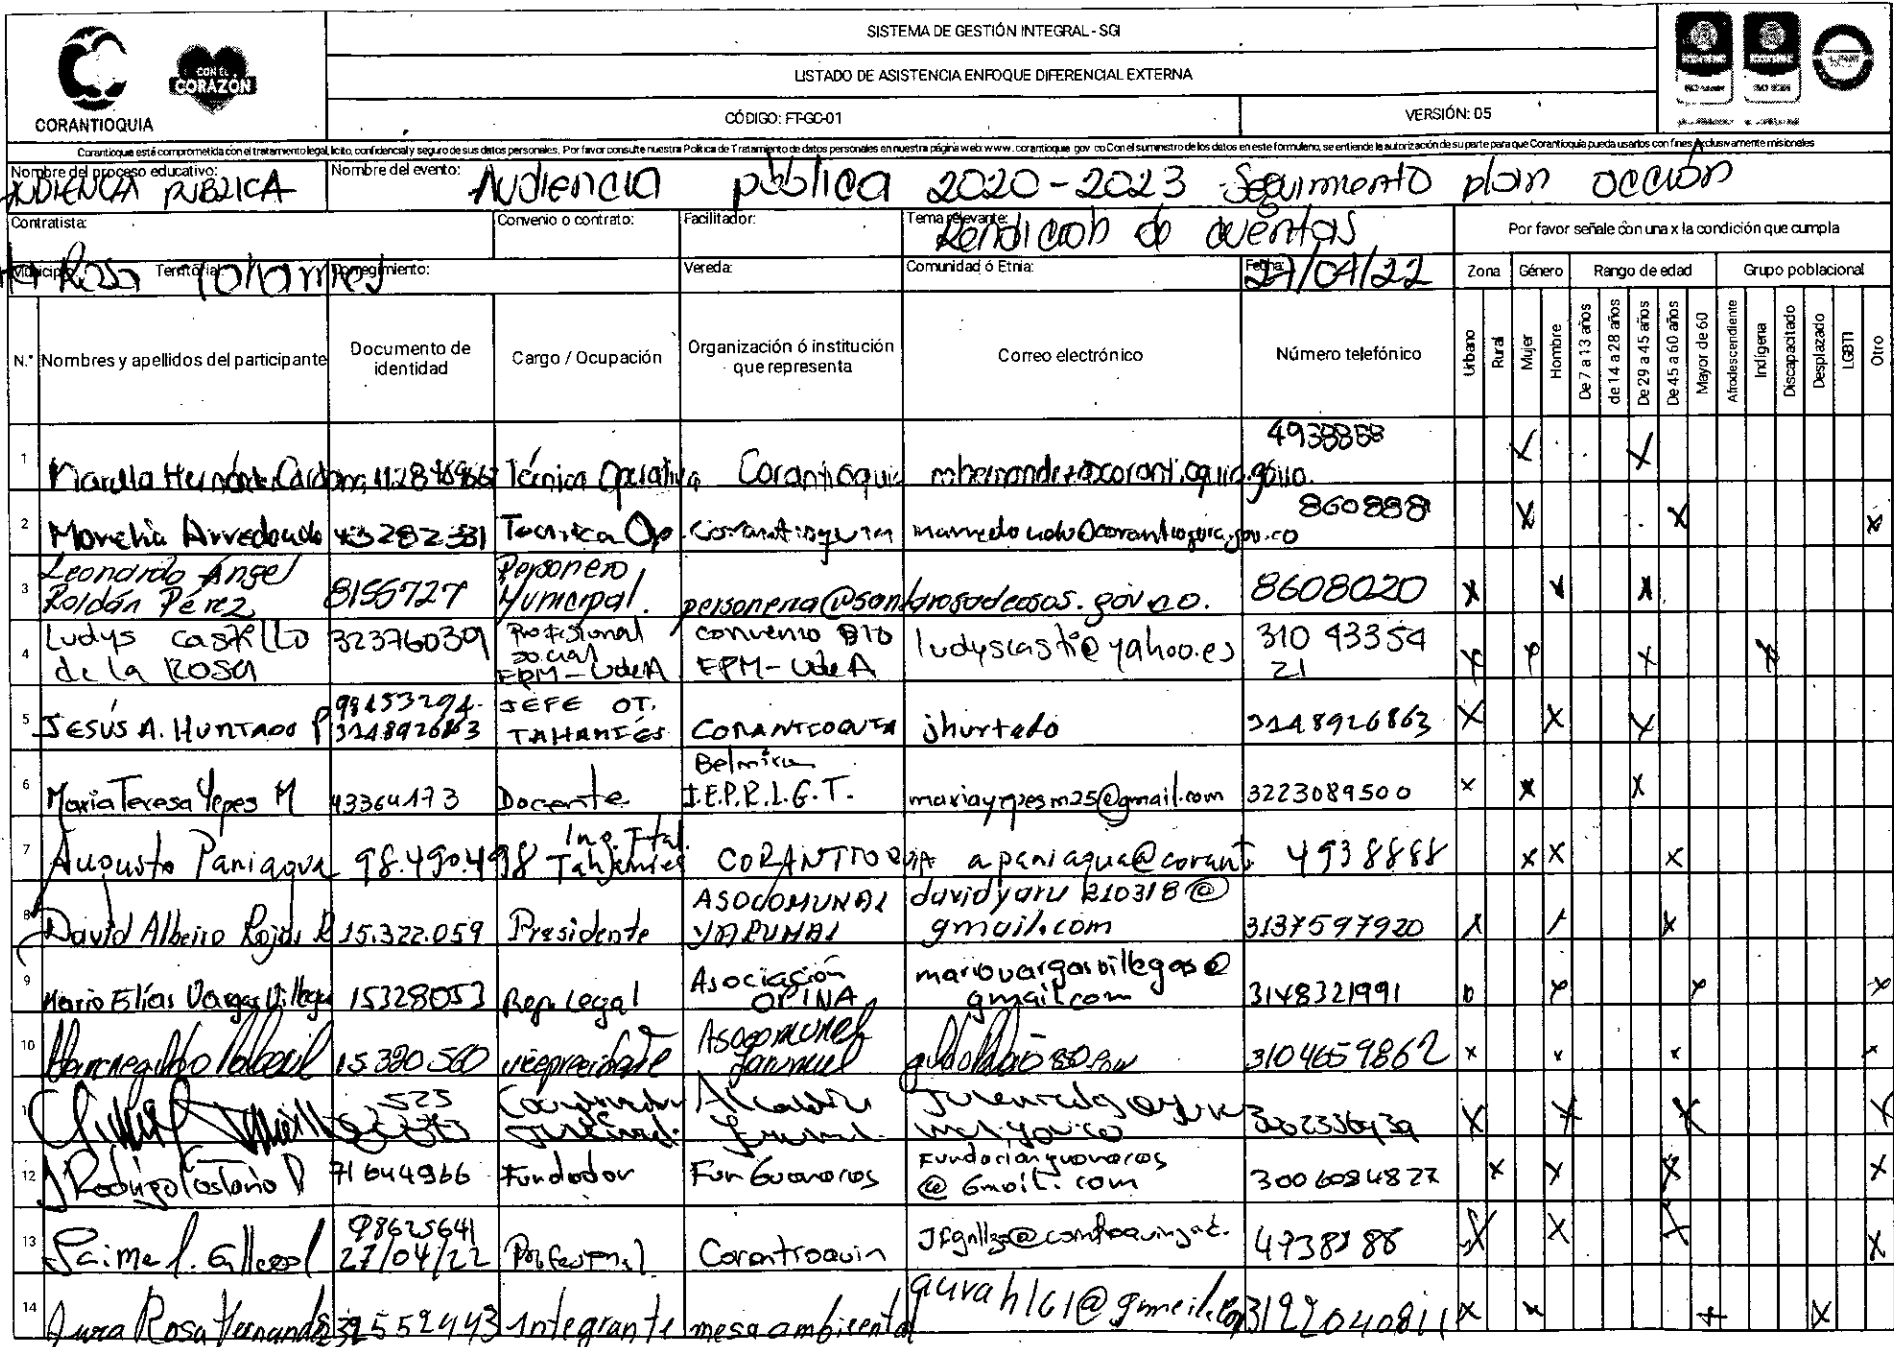 CORANTIOQUIA
CON EL
CORAZÓN
SISTEMA DE GESTIÓN INTEGRAL - SGI
LISTADO DE ASISTENCIA ENFOQUE DIFERENCIAL EXTERNA
CÓDIGO: FT-GC-01
VERSIÓN: 05
Corantioquia está comprometida con el tratamiento legal, lícito, confidencial y seguro de sus datos personales, Por favor consulte nuestra Política de Tratamiento de datos personales en nuestra página web: www.corantioquia.gov.co Con el suministro de los datos en este formulario, se entiende la autorización de su parte para que Corantioquia pueda usarlos con fines exclusivamente misionales
Nombre del proceso educativo: AUDIENCIA PUBLICA
Nombre del evento: Audiencia pública 2020-2023 Seguimiento plan acción
Contratista:
Convenio o contrato:
Facilitador:
Tema relevante: Rendicion de cuentas
Por favor señale con una x la condición que cumpla
Municipio: Rosa Territorial: Corregimiento:
Vereda:
Comunidad ó Etnia:
Fecha: 27/04/22
Zona Género Rango de edad Grupo poblacional
N.° Nombres y apellidos del participante Documento de identidad Cargo / Ocupación Organización ó institución que representa Correo electrónico Número telefónico Urbano Rural Mujer Hombre De 7 a 13 años de 14 a 28 años De 29 a 45 años De 45 a 60 años Mayor de 60 Afrodescendiente Indígena Discapacitado Desplazado LGBTI Otro
1 Técnica Operativa Corantioquia 4938888 X X
2 Arredondo 43282331 Op. Corantioquia 860888 X X X
3 Leonardo Ángel Roldán Pérez 8155727 Personero Municipal. 8608020 X X X
4 Ludys Castillo de la Rosa 32376039 Profesional social EPM-UdeA convenio EPM-UdeA ludyscasti@yahoo.es 310 43354 21 X X X X
5 JESÚS A. HURTADO P 3148926863 JEFE OT. TAHAMIES CORANTIOQUIA jhurtado 3148926863 X X X
6 Maria Teresa Yepes M 43364173 Docente Belmira I.E.P.R.L.G.T. mariayepesm25@gmail.com 3223089500 X X X
7 Augusto Paniagua 98.490.498 Tahamies CORANTIOQUIA apaniagua@corant 4938888 X X X
8 David Albeiro Rojas R 15.322.059 Presidente ASOCOMUNAL YARUMAL davidyaru210318@gmail.com 3137597920 X X X
9 Mario Elías Vargas Villegas 15328053 Rep. Legal Asociación OPINA mariovargasvillegas@gmail.com 3148321991 X X X
10 15.320.560 vicepresidente Asocomunal 3104659862 x x x x
11 525 Coordinador Alcaldía X X X X
12 J Rodrigo Castaño 71644966 Fundador Fun Guanacos Fundacionguanacos@Gmail.com X X X X
13 98625641 27/04/22 Profesional Corantioquia X X X X
14 Rosa Hernandez 32552443 integrante mesa ambiental X X X X